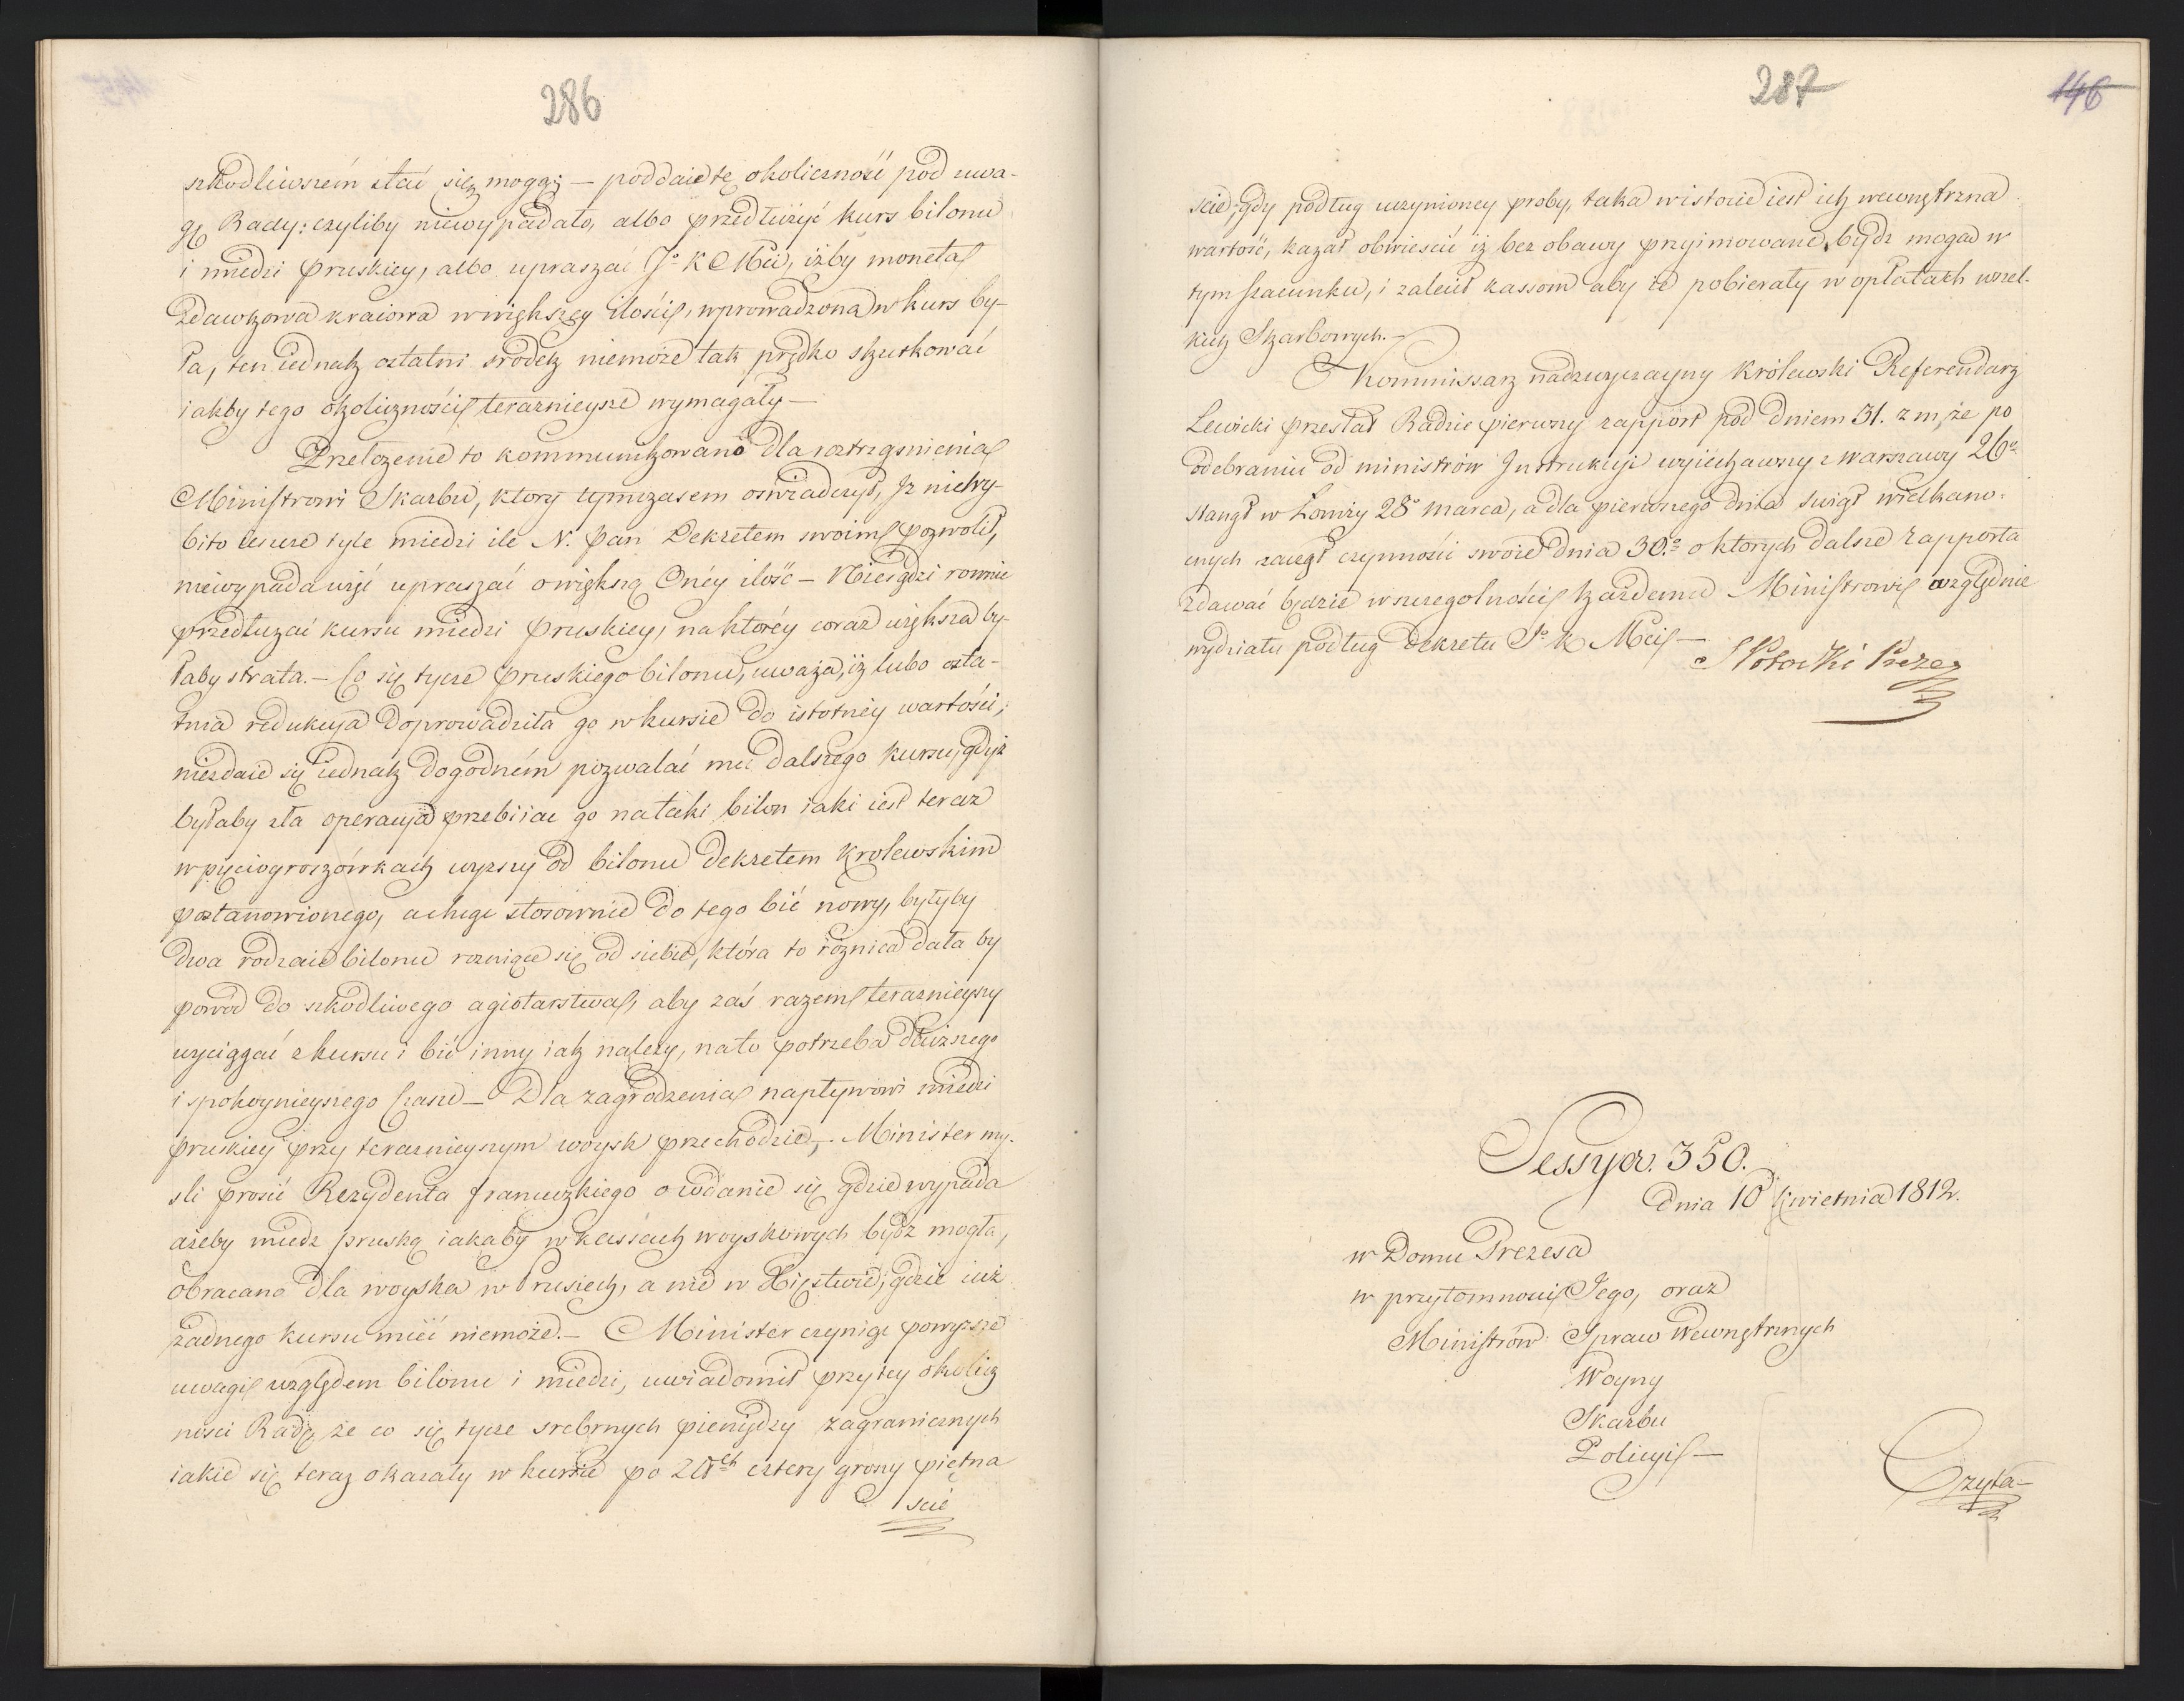 286
szkodliwszém stać się mogą; — poddaie tę okoliczność pod uwa-
gę Rady: czyliby niewypadało, albo przedłużyć kurs bilonu
i miedzi pruskiey, albo upraszać Jº K Mci, iżby moneta
zdawkowa kraiowa w większey ilości, wprowadzona w kurs by-
ła, ten iednak ostatni srodek niemoże tak prędko skutkować
iakby tego okoliczności terazniejsze wymagały —
Przełożenie to kommunikowano dla roztrzgsnienia
Ministrowi Skarbu, ktory tymczasem oswiadczył, Jż niewy-
bito ieszcze tyle miedzi ile N. Pan Dekretem swoim pozwolił,
niewypada więć upraszać o większą Onéy ilość — Niezgdzi rownie
przedłużać kursu miedzi pruskiey, na ktoréy coraz większa by-
łaby strata. — Co się tycze pruskiego bilonu, uważa, iż lubo osta-
tnia redukcya doprowadziła go w kursie do istotnéy wartości,
niezdaie się iednak dogodném pozwalać mu dalszego kursu, gdyż
byłaby zła operacya przebiiac go na taki bilon iaki iest teraz
w pięciogroszówkach wyższy od bilonu dekretem Krolewskim
postanowionego, a chcąc stosownie do tego bić nowy, byłyby
dwa rodzaie bilonu rozniące się od siebie, która to róznica dała by
powód do szkodliwego agiotarstwa, aby zaś razem terazniejszy
wyciągać z kursu i bić inny iak należy, na to potrzeba dłuższego
i spokoynieyszego czasu — Dla zagrodzenia napływowi miedzi
pruskiey przy teraznieyszym woysk przechodzie, — Minister my-
sli prosić Rezydenta francuzkiego o udanie się gdzie wypada
ażeby miedz pruską iakaby w kassach woyskowych bydz mogła,
obracano dla woyska w Prusiech, a nie w Xięstwie, gdzie iuż
żadnego kursu mieć niemoże. — Minister czyniąc powyzsze
uwagi względem bilonu i miedzi, uwiadomił przy tey okolicz
nosci Radę, że co się tycze srebrnych pieniędzy zagranicznych
iakie się teraz okazały w kursie po złch cztery groszy piętna
scie
287
146
scie, gdy podług uczynioney proby, taka w istocie iest ich wewnętrzna
wartość, kazał obwieścić iż bez obawy przyimowane bydz mogą w
tym szacunku, i zalecił kassom aby ie pobierały w opłatach wszel-
kich Skarbowych. —
Kommissarz nadzwyczayny Królewski Referendarz
Lewicki przesłał Radzie pierwszy rapport pod dniem 31. z m, że po
odebraniu od ministrów Instrukcyi wyiechawszy z Warszawy 26º
stanął w Łomży 28º marca, a dla pierwszego dnia swiąt wielkano-
cnych zaczął czynności swoie dnia 30.º o ktorych dalsze rapporta
zdawać będzie w szczegolności każdemu Ministrowi względnie
wydziału podług Dekretu Jº K Mci —
S Potocki Prezes
Sessya. 350.
Dnia 10 Kwietnia 1812.
w Domu Prezesa
w przytomności Jego, oraz
Ministrów Spraw Wewnętrznych
Woyny
Skarbu
Policyi —
Czyta-